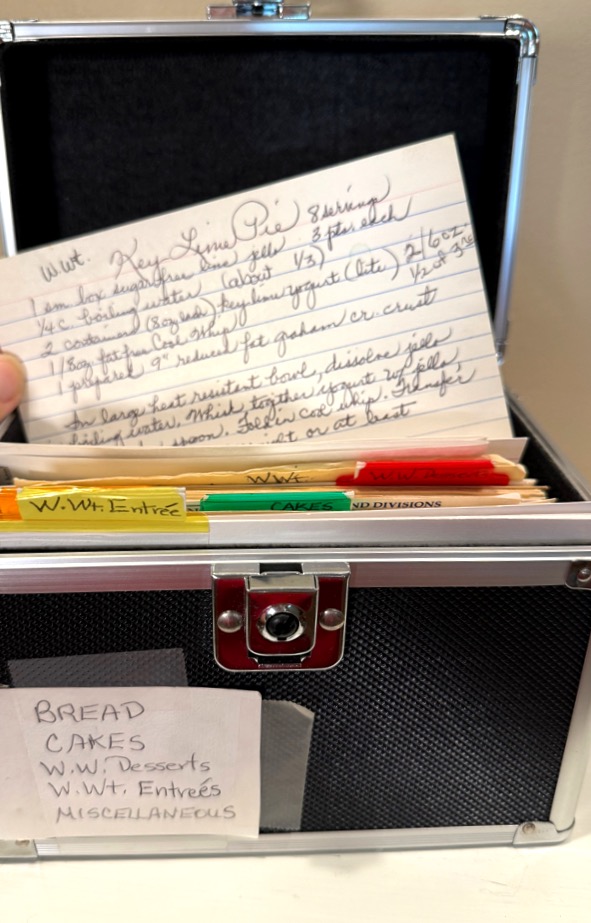 W Wt. Key Lime Pie 8 servings
3 pts. each
1 sm box sugar free lime jello
1/4 c. boiling water (about 1/3)
2 containers (8oz ea.) key lime yogurt (lite) 2/6 oz.
1/2 of 3rd
1/8oz. fat free Cool Whip
1 prepared 9" reduced fat graham cr. crust
In large heat resistant bowl, dissolve jello
boiling water. Whisk together yogurt w/ jello
spoon. Fold in cool whip. Transfer
or at least
W Wt.
W.Wt. Entrée
CAKES
ND DIVISIONS
BREAD
CAKES
W.W. Desserts
W.Wt. Entreés
MISCELLANEOUS